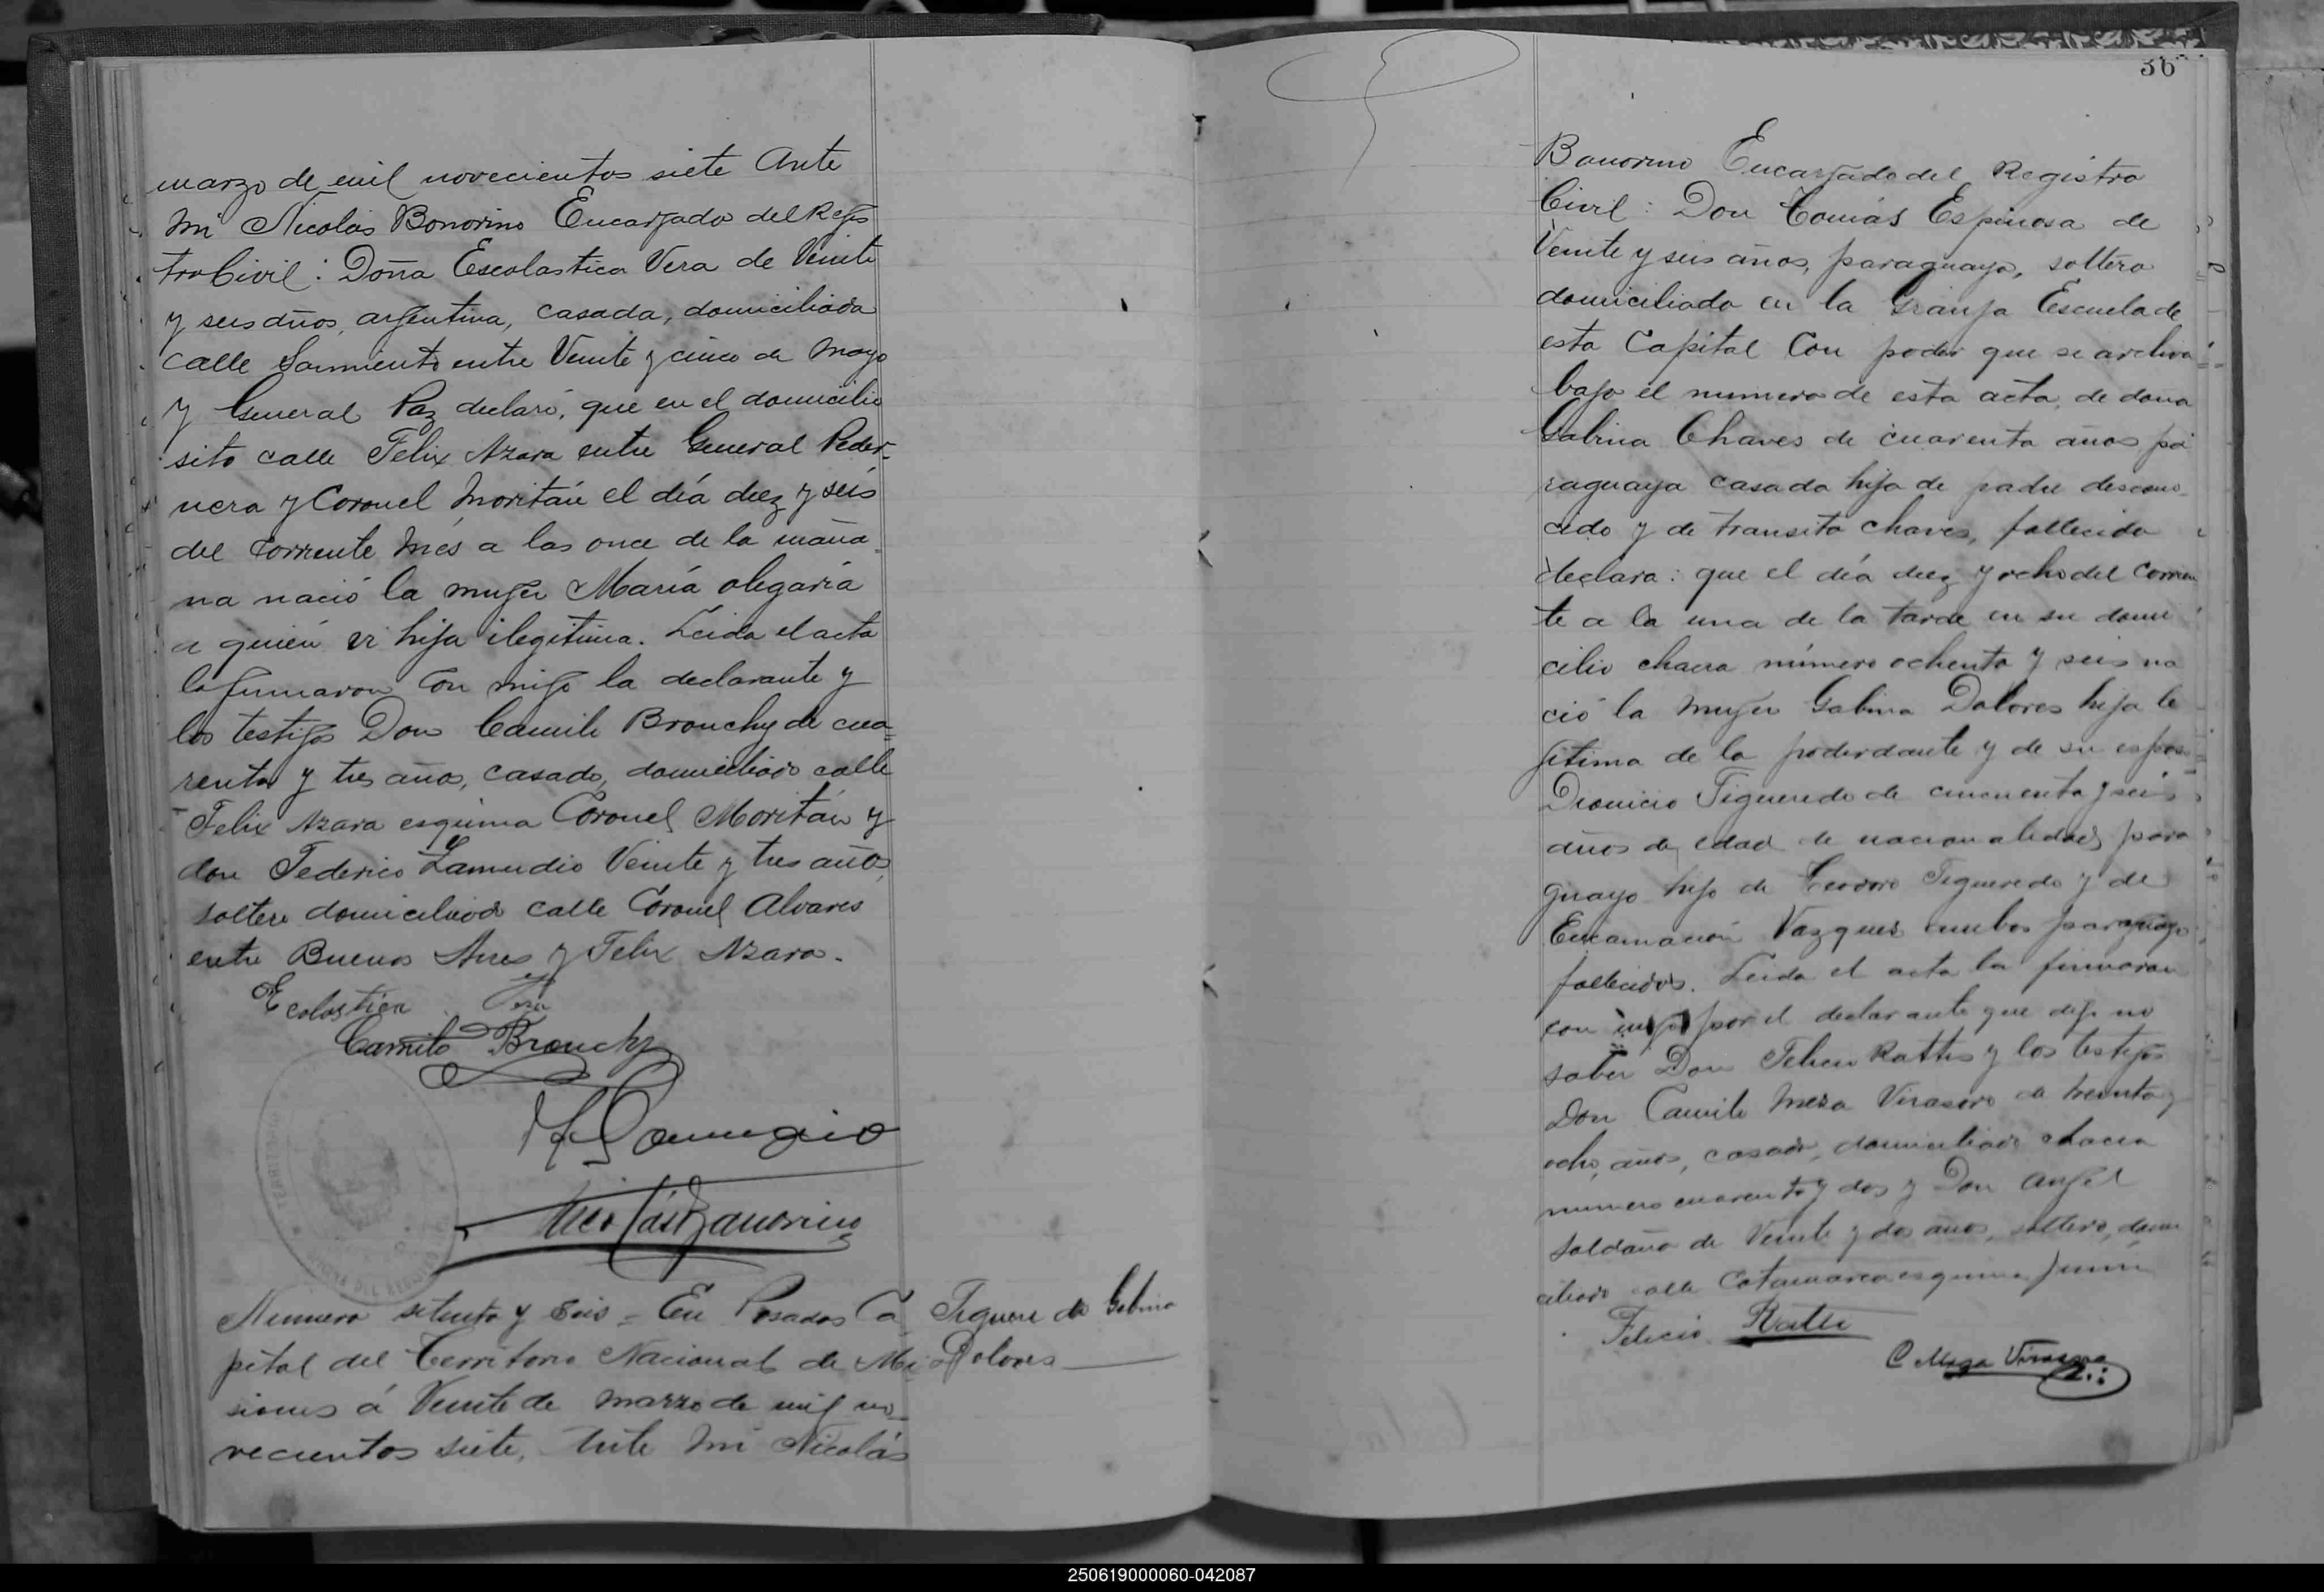 marzo de mil novecientos siete Ante
mi Nicolás Bonorino Encargado del Regis
tro Civil: Doña Escolastica Vera de Veinte
y seis años, argentina, casada, domiciliada
calle Sarmiento entre Veinte y cinco de Mayo
y General Paz declaró, que en el domicilio
sito calle Felix Azara entre General Peder-
nera y Coronel Moritán el día diez y seis
del corriente mes a las once de la maña-
na nació la mujer María olegaria
a quién vi hija ilegitima. Leida el acta
la firmaron con migo la declarante y
los testigos Don Camilo Brouchy de cua=
renta y tres años, casado, domiciliado calle
Felix Azara esquina Coronel Moritán y
don Federico Zamudio Veinte y tres años,
soltero domiciliado calle Coronel Alvares
entre Buenos Aires y Felix Azara.
Ecolastica Vera
Camilo Brouchy
Nicolás Bonorino
Numero setenta y seis = En Posadas Ca
pital del Territorio Nacional de Mi
siones á Veinte de marzo de mil no
vecientos siete, Ante mi Nicolás
Figueredo Gabina
Dolores
36
Bonorino Encargado del Registro
Civil: Don Tomás Espinosa de
Veinte y seis años, paraguayo, soltero
domiciliado en la Granja Escuela de
esta Capital Con poder que se archiva
bajo el numero de esta acta, de doña
Gabina Chaves de cuarenta años, pa
raguaya casada hija de padre descono-
cido y de transito chaves, fallecida
declara: que el día diez y ocho del corrien
te a la una de la tarde en su domi
cilio chacra número ochenta y seis na
ció la mujer Gabina Dolores hija le
gitima de la poderdante y de su esposo
Dionicio Figueredo de cincuenta y seis
años de edad de nacionalidad para
guayo hijo de Teodoro Figueredo y de
Encarnación Vazques ambos paraguayos
fallecidos. Leida el acta la firmaron
con migo por el declarante que dijo no
saber Don Felicio Rattis y los testigos
Don Camilo Meza Virasoro de treinta y
ocho años, casado, domiciliado chacra
numero cuarenta y dos y Don Angel
Saldaña de Veinte y dos años, soltero, domi
ciliado calle Catamarca esquina Junin
Felicio Ratti
C Meza Virasoro
250619000060-042087